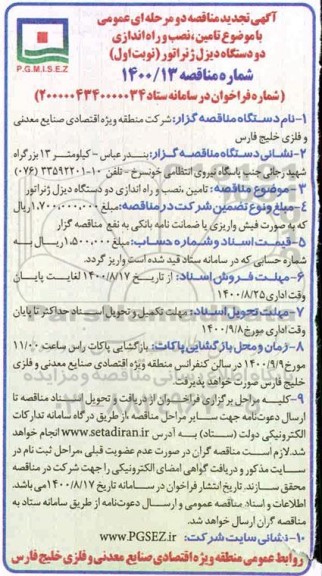 آگهی تجدید مناقصه دو مرحله ای عمومی
با موضوع تامین، نصب و راه اندازی
دو دستگاه دیزل ژنراتور (نوبت اول)
شماره مناقصه ۱۴۰۰/۱۳
P.G.M.I.S.E.Z
(شماره فراخوان در سامانه ستاد ۲۰۰۰۰۰۴۳۴۰۰۰۰۰۳۴)
۱-نام دستگاه مناقصه گزار: شرکت منطقه ویژه اقتصادی صنایع معدنی و فلزی خلیج فارس
۲-نشانی دستگاه مناقصه گزار: بندر عباس - کیلومتر ۱۳ بزرگراه
شهید رجائی جنب پاسگاه نیروی انتظامی خونسرخ - تلفن ۱۰-۳۳۵۹۲۲۰۱ (۰۷۶)
۳- موضوع مناقصه : تامین ،نصب و راه اندازی دو دستگاه دیزل ژنراتور
۴-مبلغ ونوع تضمین شرکت در مناقصه: مبلغ ۱،۷۰۰،۰۰۰،۰۰۰ ریال
که به صورت فیش واریزی یا ضمانت نامه بانکی به نفع مناقصه گزار
۵-قیمت اسناد و شماره حساب: مبلغ ۱،۵۰۰،۰۰۰ ریال به
شماره حسابی که در سامانه ستاد قید شده است واریز گردد.
۶-مهلت فروش اسناد: از تاریخ ۱۴۰۰/۸/۱۷ لغایت پایان
وقت اداری ۱۴۰۰/۸/۲۵
۷-مهلت تحویل اسناد: مهلت تکمیل و تحویل اسناد حداکثر تا پایان
وقت اداری مورخ ۱۴۰۰/۹/۸
۸-زمان و محل بازگشایی پاکات: بازگشایی پاکات راس ساعت ۱۱/۰۰
مورخ ۱۴۰۰/۹/۹ در سالن کنفرانس منطقه ویژه اقتصادی صنایع معدنی و فلزی
خلیج فارس صورت خواهد پذیرفت.
۹-کلیه مراحل برگزاری فراخوان از دریافت و تحویل اسناد مناقصه تا
ارسال دعوت‌نامه جهت سایر مراحل مناقصه از طریق درگاه سامانه تدارکات
الکترونیکی دولت (ستاد) به آدرس www.setadiran.ir انجام خواهد
شد.لازم است مناقصه گران در صورت عدم عضویت قبلی ،مراحل ثبت نام در
سایت مذکور و دریافت گواهی امضای الکترونیکی را جهت شرکت در مناقصه
محقق سازند. تاریخ انتشار فراخوان در سامانه تاریخ ۱۴۰۰/۸/۱۷ می باشد.
اطلاعات و اسناد مناقصه عمومی و ارسال دعوت‌نامه از طریق سامانه ستاد به
مناقصه گران ارسال خواهد شد.
۱۰-نشانی سایت شرکت: www.PGSEZ.ir
روابط عمومی منطقه ویژه اقتصادی صنایع معدنی و فلزی خلیج فارس